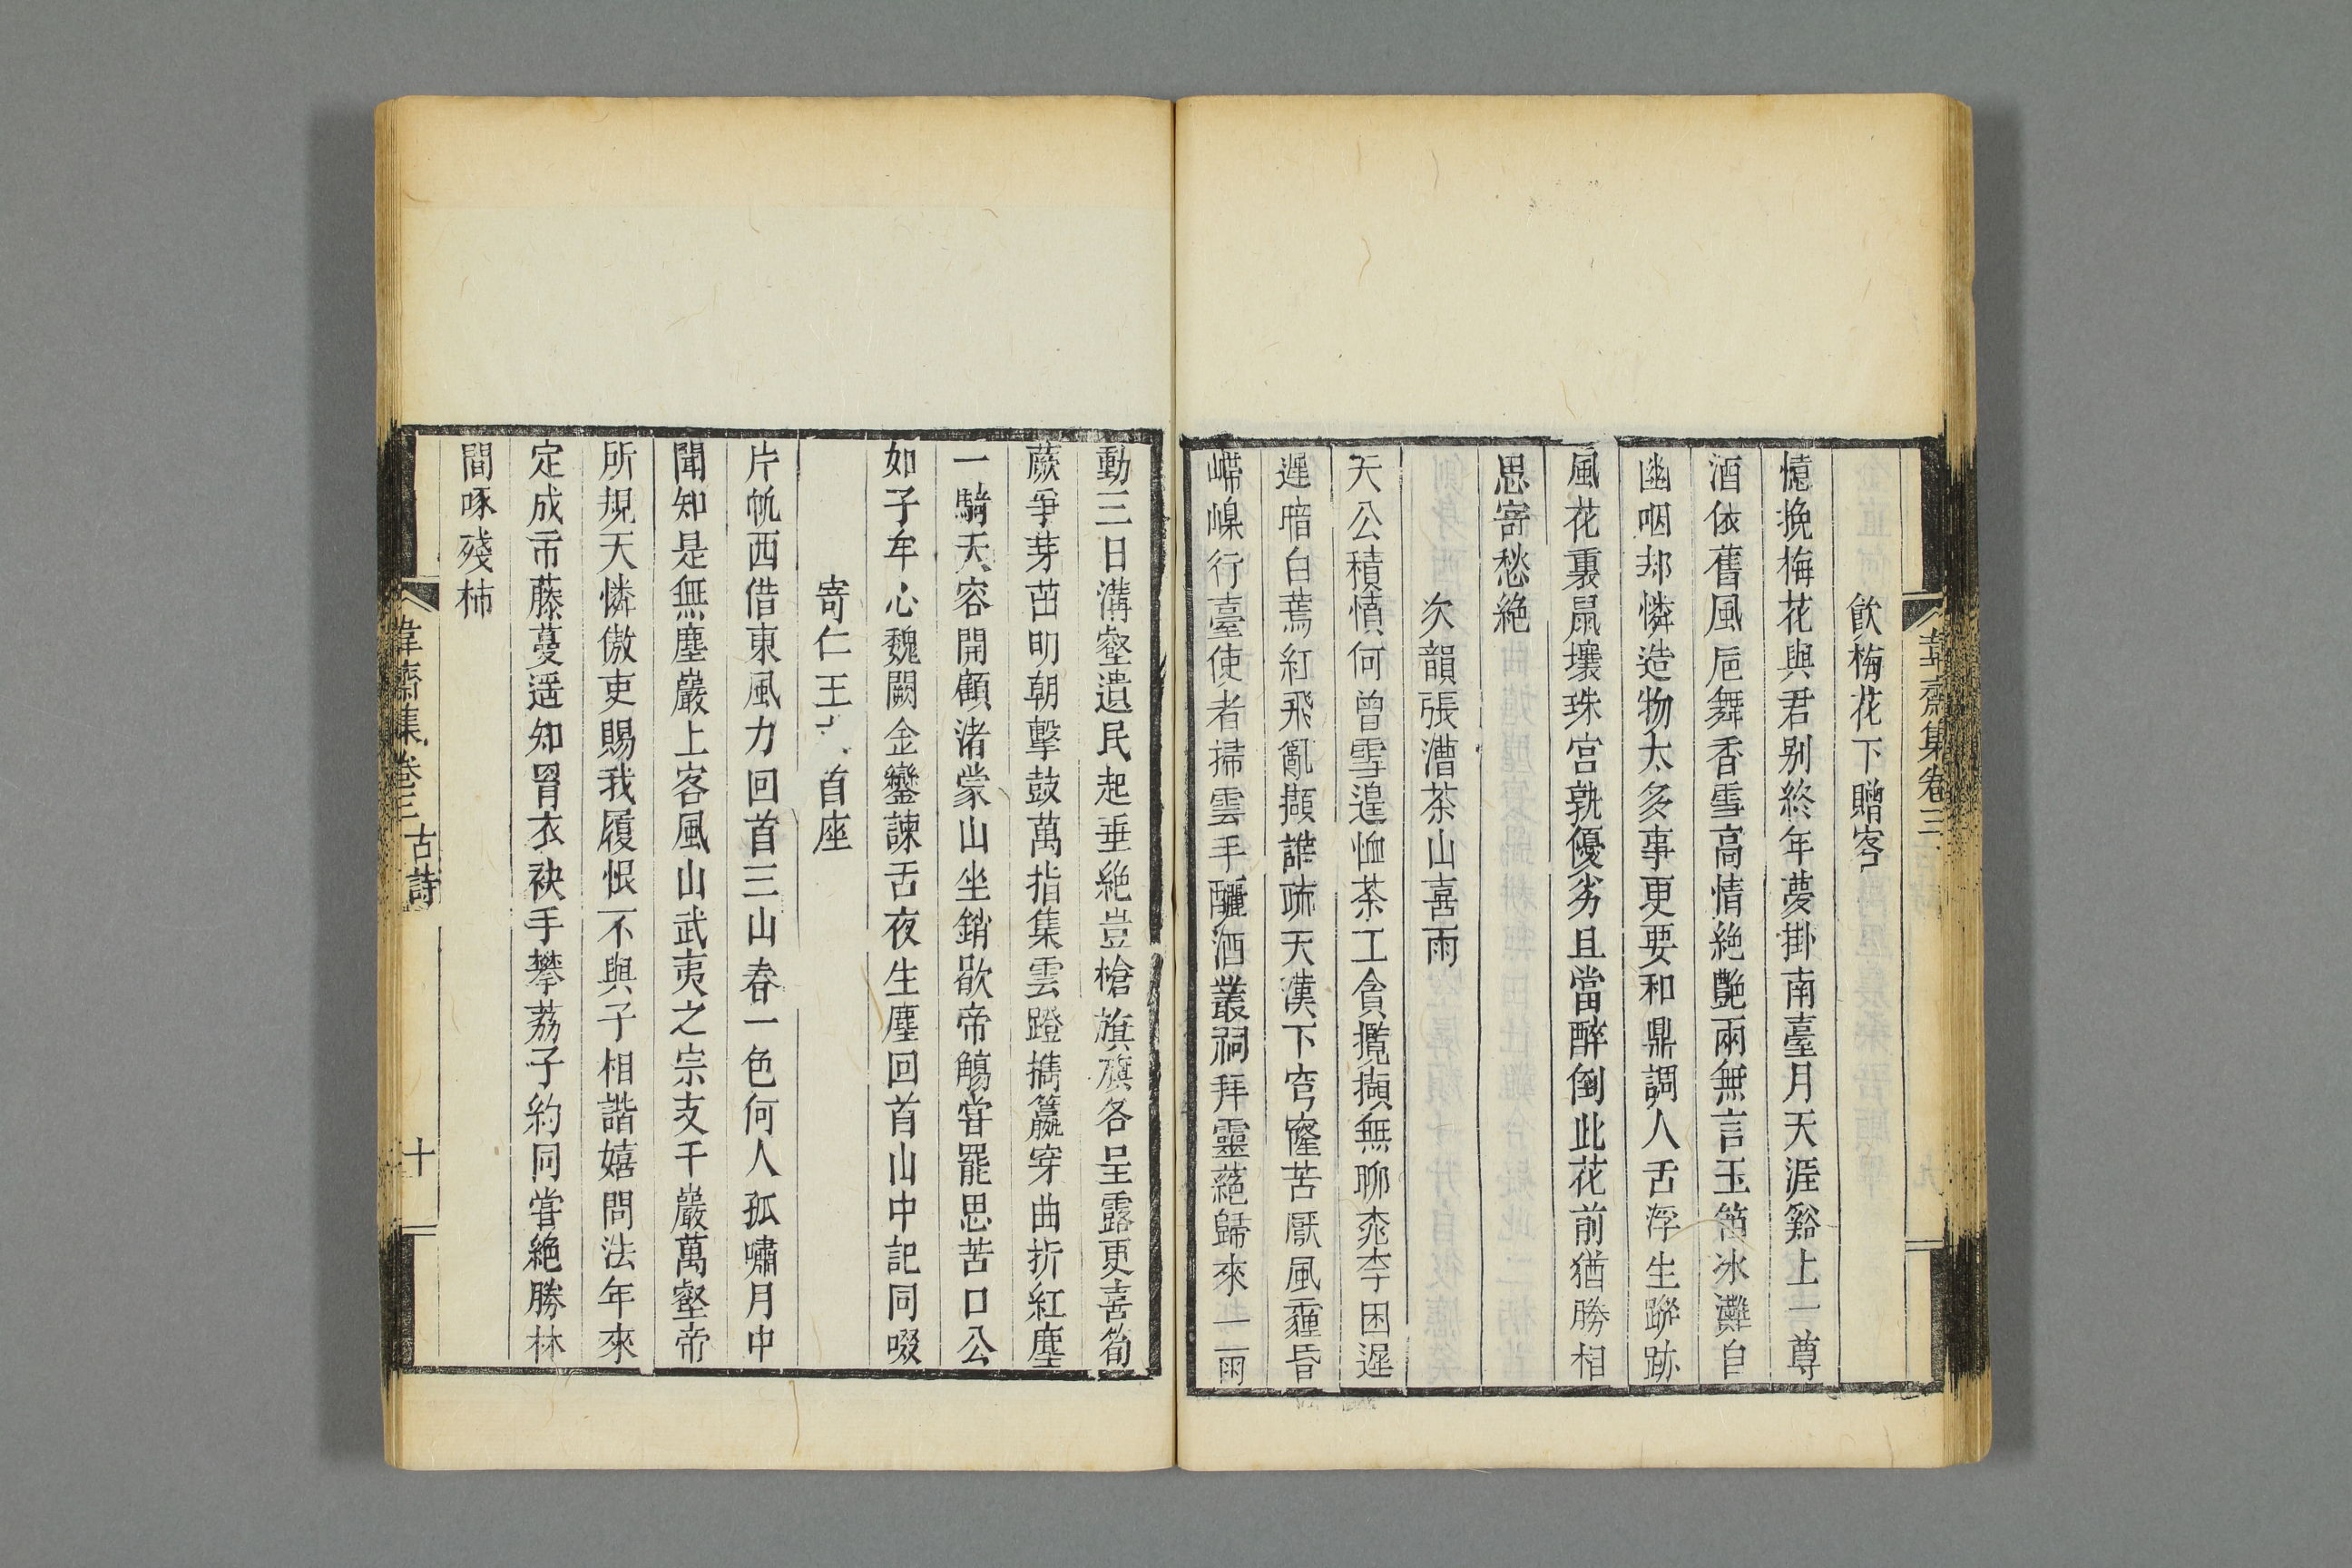 韋齋集卷三
飲梅花下贈客
憶挽梅花與君别終年夢掛南臺月天涯谿上一尊
酒依舊風巵舞香雪高情絶艷兩無言玉笛冰灘自
幽咽却憐造物太多事更要和鼎調人舌浮生蹤跡
風花裏鼠壤珠宫孰優劣且當醉倒此花前猶勝相
思寄愁絶
次韻張漕茶山喜雨
天公積憤何曾雪遑恤茶工貪攬擷無聊桃李困遲
遲暗白蔫紅飛亂擷誰疏天漢下穹窿苦厭風霾昏
㟴嵲行臺使者掃雲手釃酒叢祠拜靈蕝歸來一雨
動三日溝壑遺民起垂絶豈槍旗旗各呈露更喜筍
蕨爭芽茁明朝擊鼓萬指集雲蹬攜籯穿曲折紅塵
一騎天容開顧渚蒙山坐銷歇帝觴甞罷思苦口公
如子牟心魏闕金鑾諫舌夜生塵回首山中記同啜
寄仁王 首座
片帆西借東風力回首三山春一色何人孤嘯月中
聞知是無塵巖上客風山武夷之宗支千巖萬壑帝
所規天憐傲吏賜我履恨不與子相諧嬉問法年來
定成市藤蔓遥知罥衣袂手攀荔子約同甞絶勝林
間啄殘柿
韋齋集卷三 古詩
十